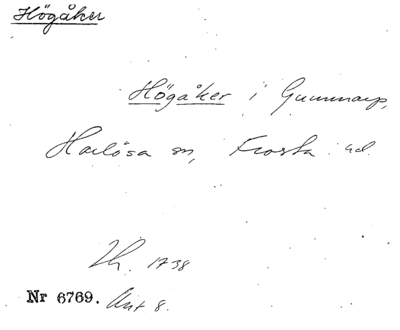 Högåker
Högåker i Gummarp,
Harlösa sn, Frosta hd.
1738
Nr 6769. Akt 8.